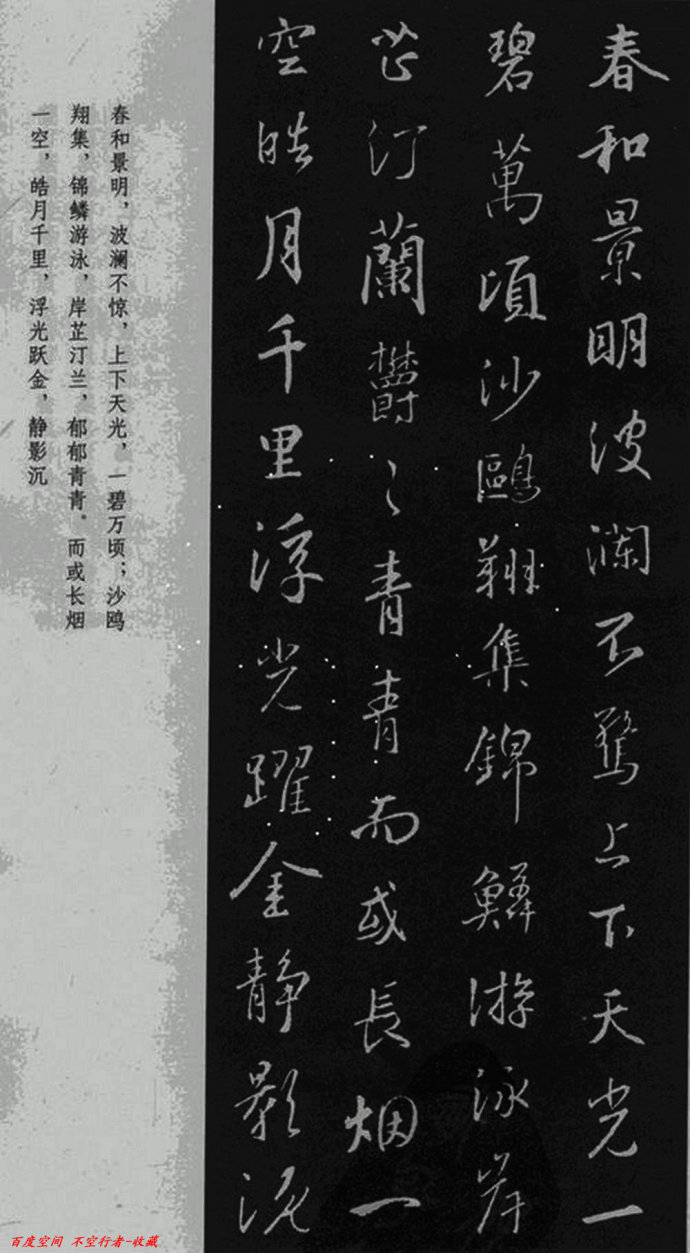 春和景明波瀾不驚上下天光一
碧萬頃沙鷗翔集錦鱗游泳岸
芷汀蘭欝〻青青而或長烟一
空皓月千里浮光躍金静影沉
春和景明，波澜不惊，上下天光，一碧万顷；沙鸥
翔集，锦鳞游泳，岸芷汀兰，郁郁青青。而或长烟
一空，皓月千里，浮光跃金，静影沉
百度空间 不空行者-收藏